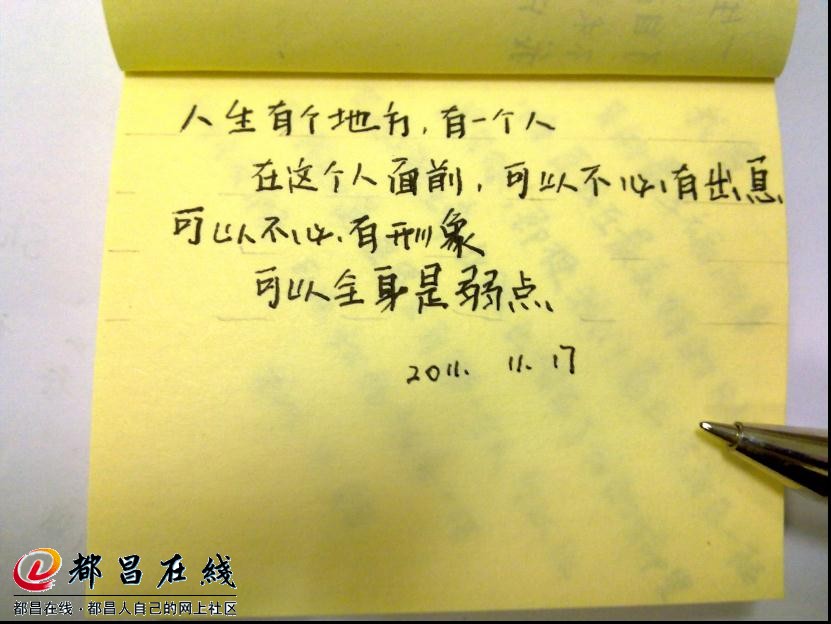 人生有个地方,有一个人
在这个人面前,可以不必有出息、
可以不必有形象
可以全身是弱点、
2011. 11. 17
都昌在綫
都昌在线·都昌人自己的网上社区